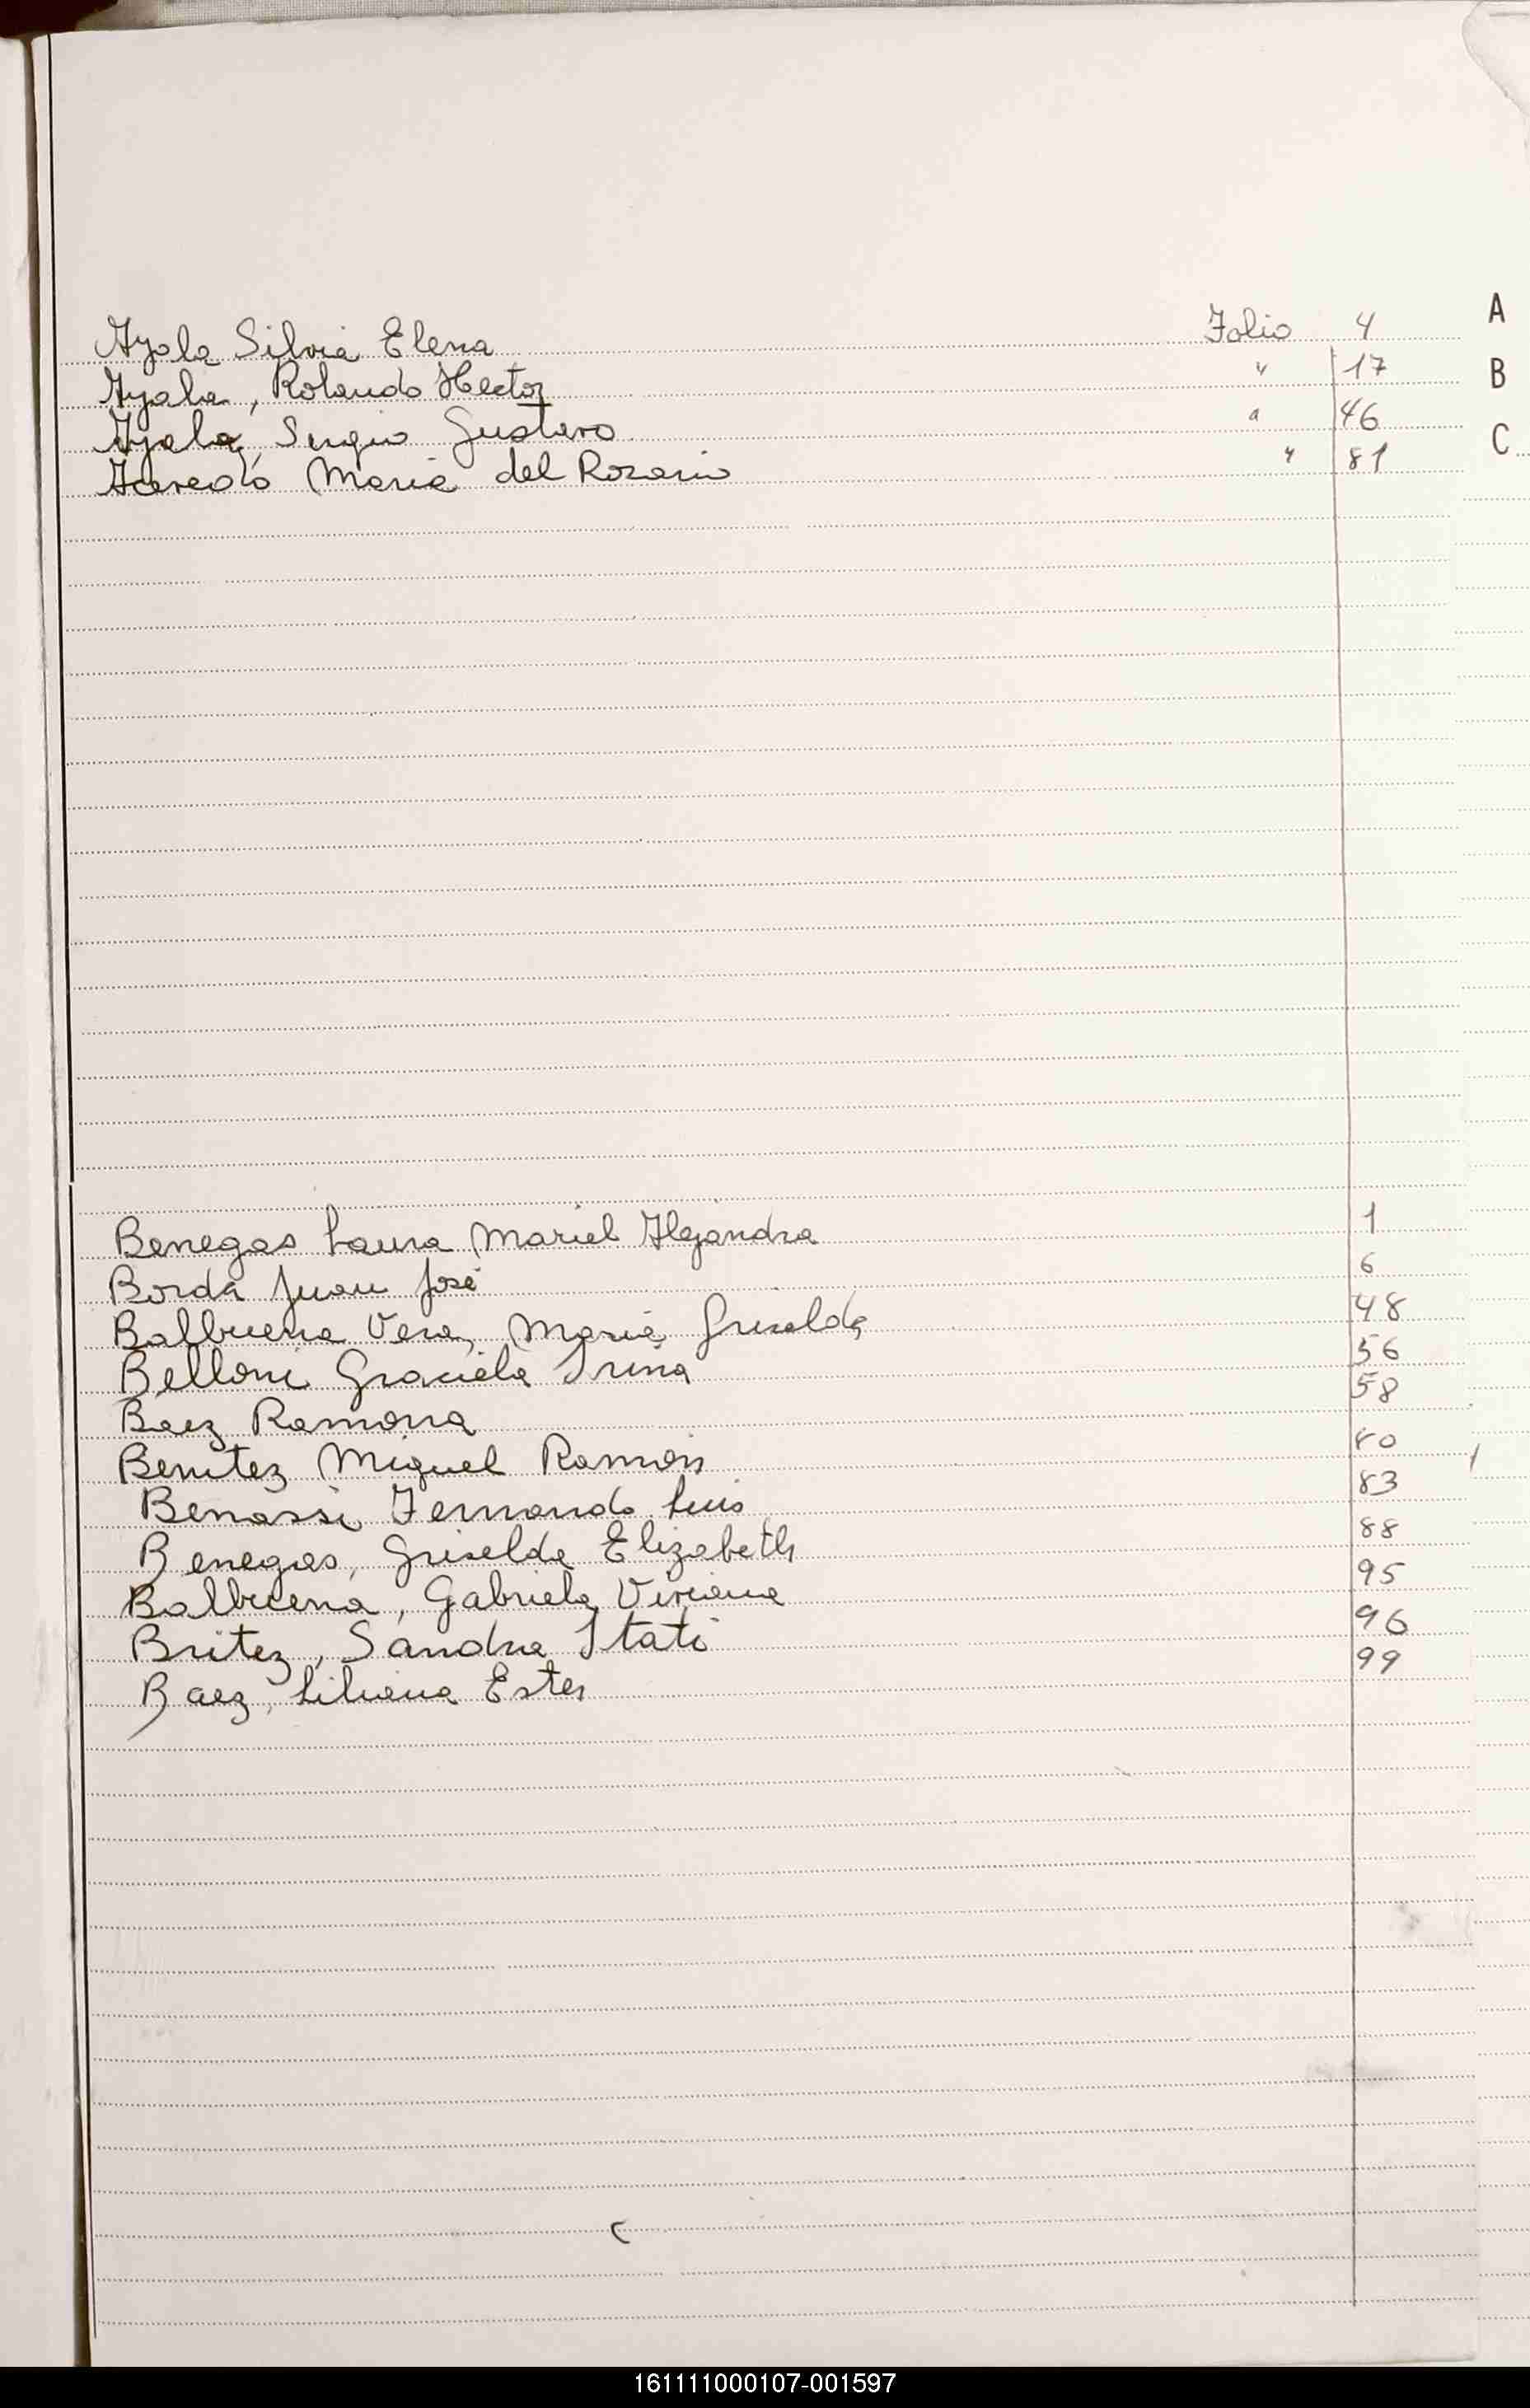 Ayala Silvia Elena Folio 4 A
Ayala, Rolando Hector " 17 B
Ayala, Sergio Gustavo " 46 C
Acevedo Maria del Rosario " 81
Benegas Laura Mariel Alejandra 1
Borda Juan José 6
Balbuena Vera, Maria Griselda 48
Belloni Graciela Irina 56
Baez Ramona 58
Benitez Miguel Ramón
Benassi Fernando Luis 83
Benegas, Griselda Elizabeth 88
Balbuena, Gabriela Viviana 95
Britez, Sandra Itati 96
Baez, Liliana Ester 99
161111000107-001597